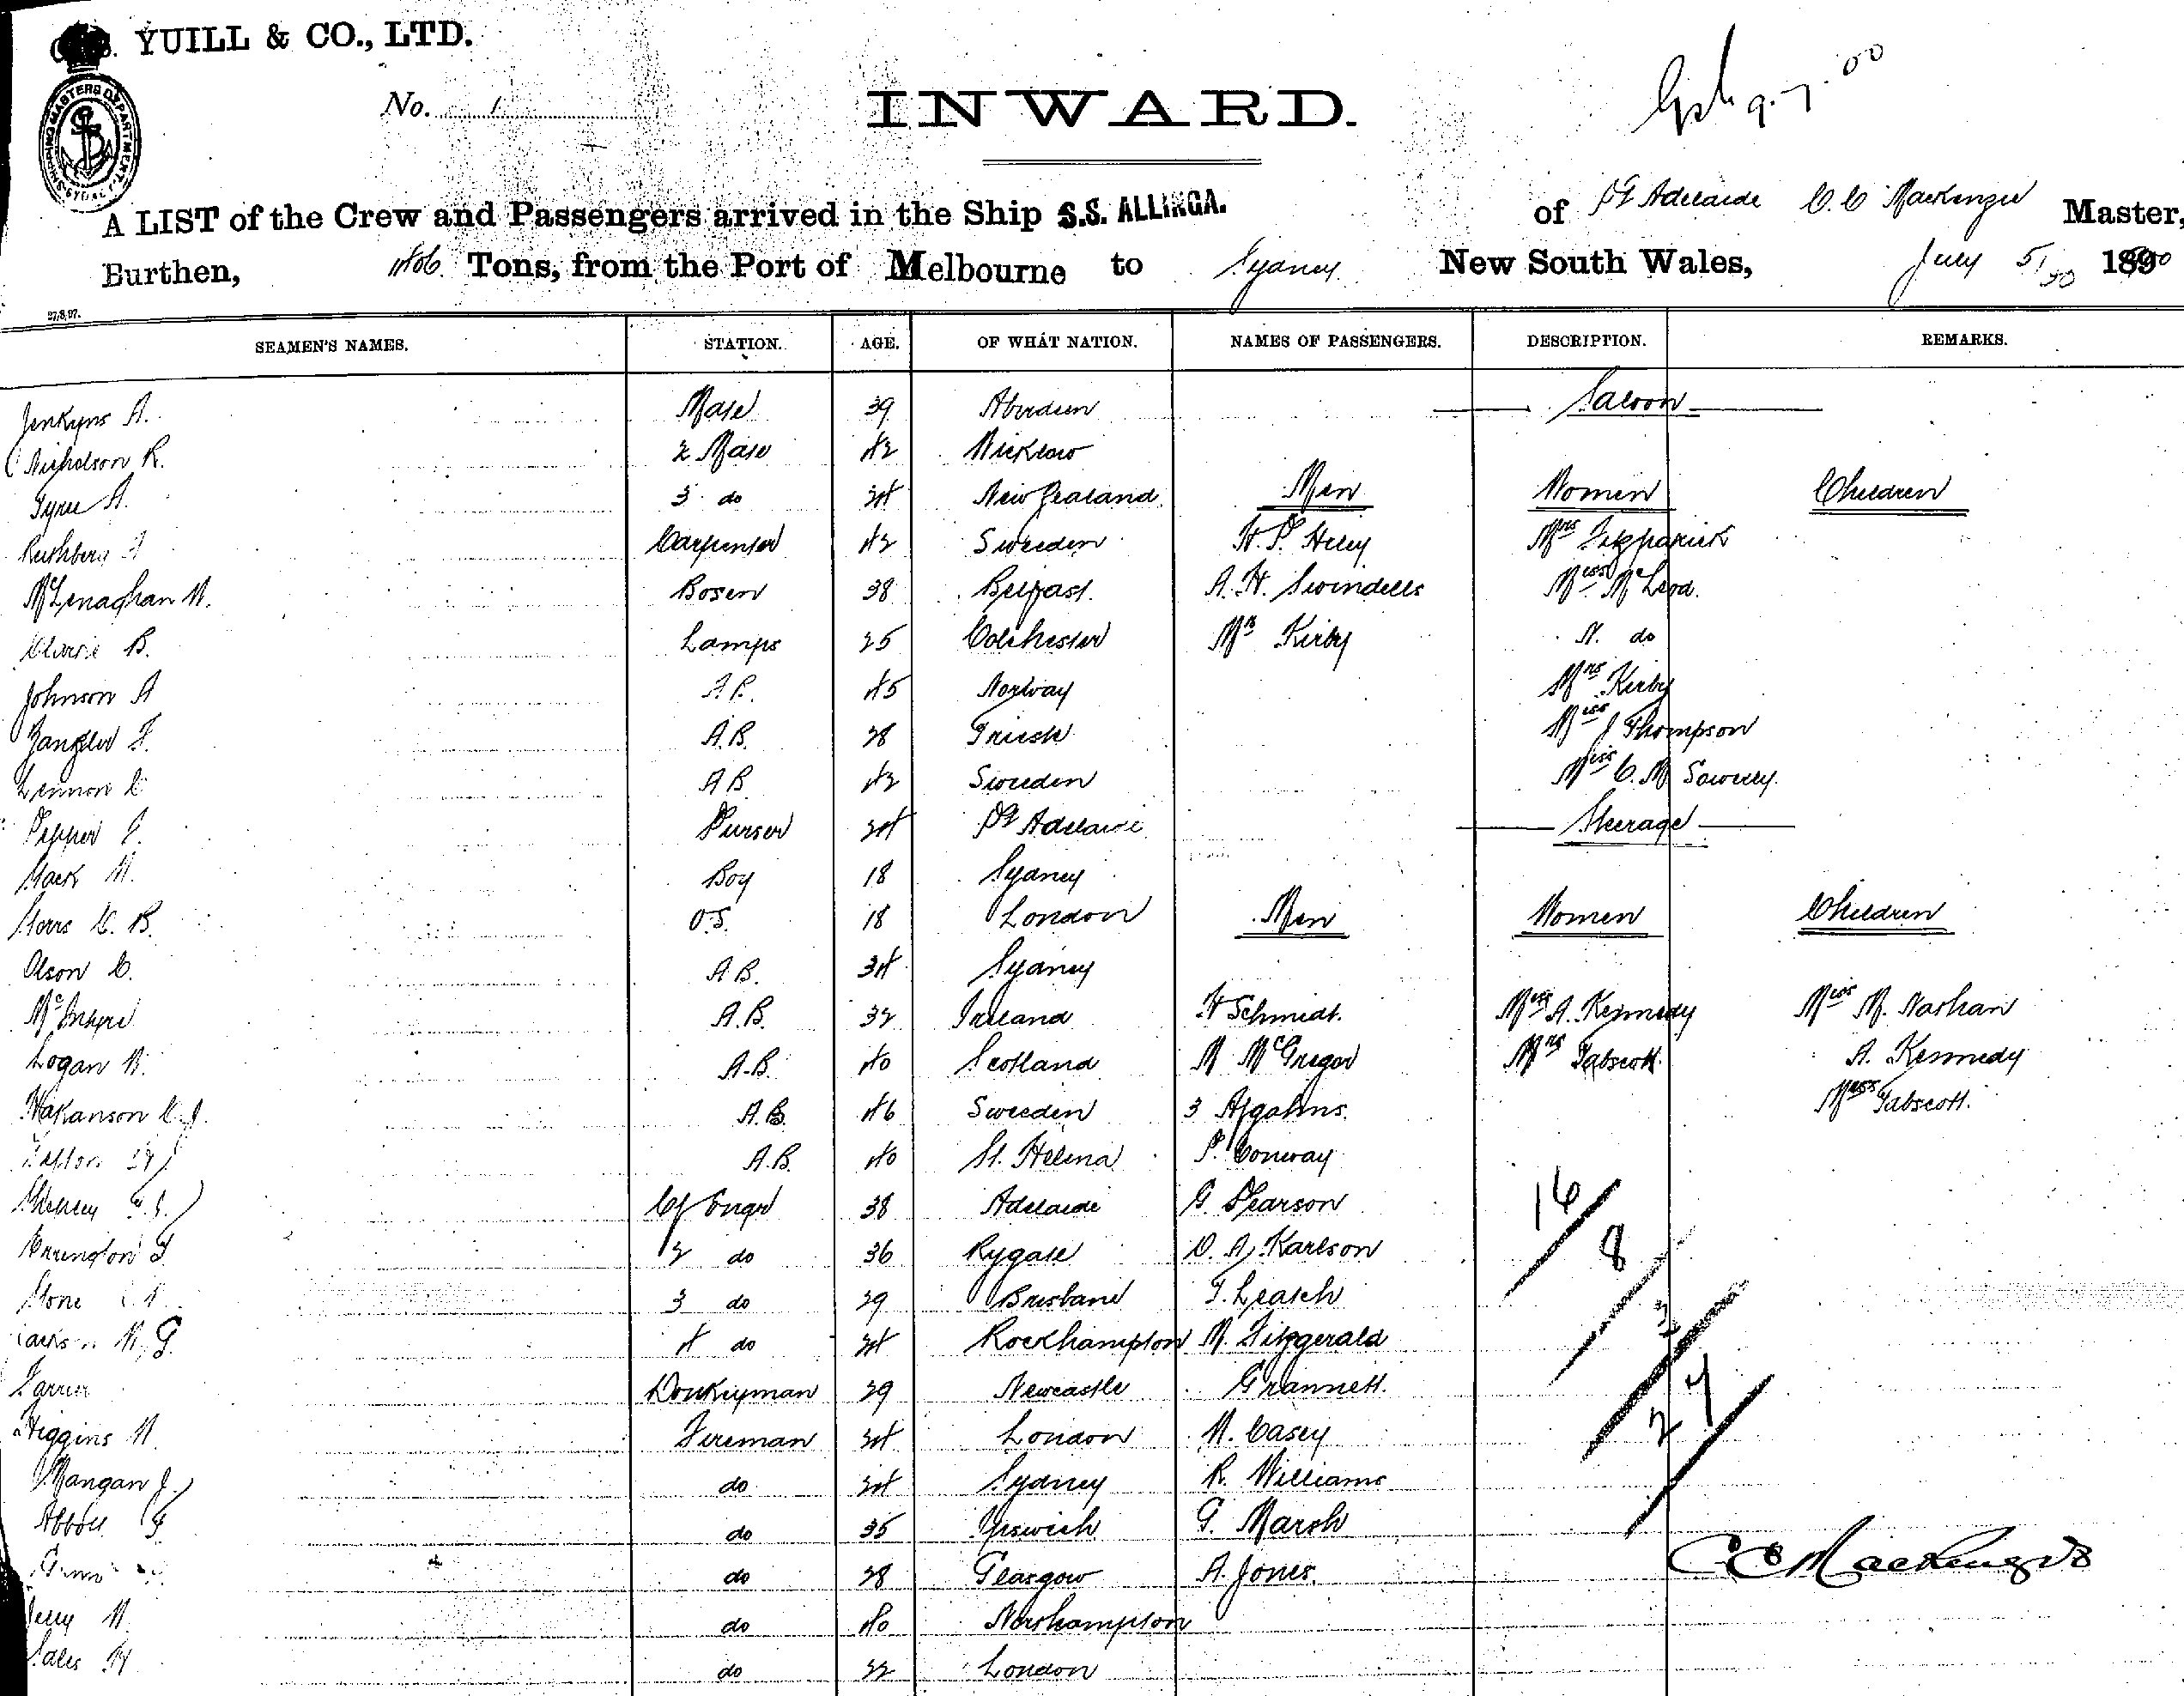 YUILL & CO., LTD.
No. 1
INWARD.
SHIPPING MASTERS DEPARTMENT
A LIST of the Crew and Passengers arrived in the Ship S.S. ALLINGA. of Pt Adelaide C. C Mackenzie Master,
Burthen, Tons, from the Port of Melbourne to Sydney New South Wales, July 5/ 1900
27,8,97.
SEAMEN'S NAMES. STATION. AGE. OF WHAT NATION. NAMES OF PASSENGERS. DESCRIPTION. REMARKS.
Jenkyns A. Mate 39 Aberdeen Saloon
Nicholson R. 2 Mate 42 Wicklow
3 do 24 New Zealand Men Women Children
Carpenter 42 Sweeden Mrs Fitzpatrick
McLenaghan W. Bosen 38 Belfast. A. H. Swindells Miss McLeod.
B. Lamps 25 Colchester Mr Kirby do
Johnson A A.B. 45 Norway Mrs Kirby
A.B. 28 Miss J Thompson
Lennon C A.B. 42 Sweeden Miss C. M
Pepper Purser 24 Pt Adelaide Steerage
Mack W. Boy 18 Sydney
O.S. 18 London Men Women Children
Olson C. A.B. 34 Sydney
McIntyre A.B. 32 Ireland H Schmidt. A. Kennedy Miss M. Nathan
Logan W. A.B. 40 Scotland M McGregor Mrs Tabscott. A. Kennedy
Hakanson A.B. 46 Sweeden 3 Afgahns. Tabscott.
A.B. 40 St. Helena P. Conway
Cf Enger 38 Adelaide G. Pearson 16
2 do 36 Rygate Karlson 8
Stone 3 do 29 Brisbane F. Leatch 3
W. G. 4 do 24 Rockhampton M. Fitzgerald
Farrer Donkeyman 29 Newcastle Grannett. 27
Higgins W. Fireman 24 London M. Casey
Mangan J. do 24 Sydney R. Williams
Abbott do 35 Ipswich G. Marsh
do 28 Glasgow A. Jones. C C Mackenzie
do 40 Northampton
Sales do 22 London